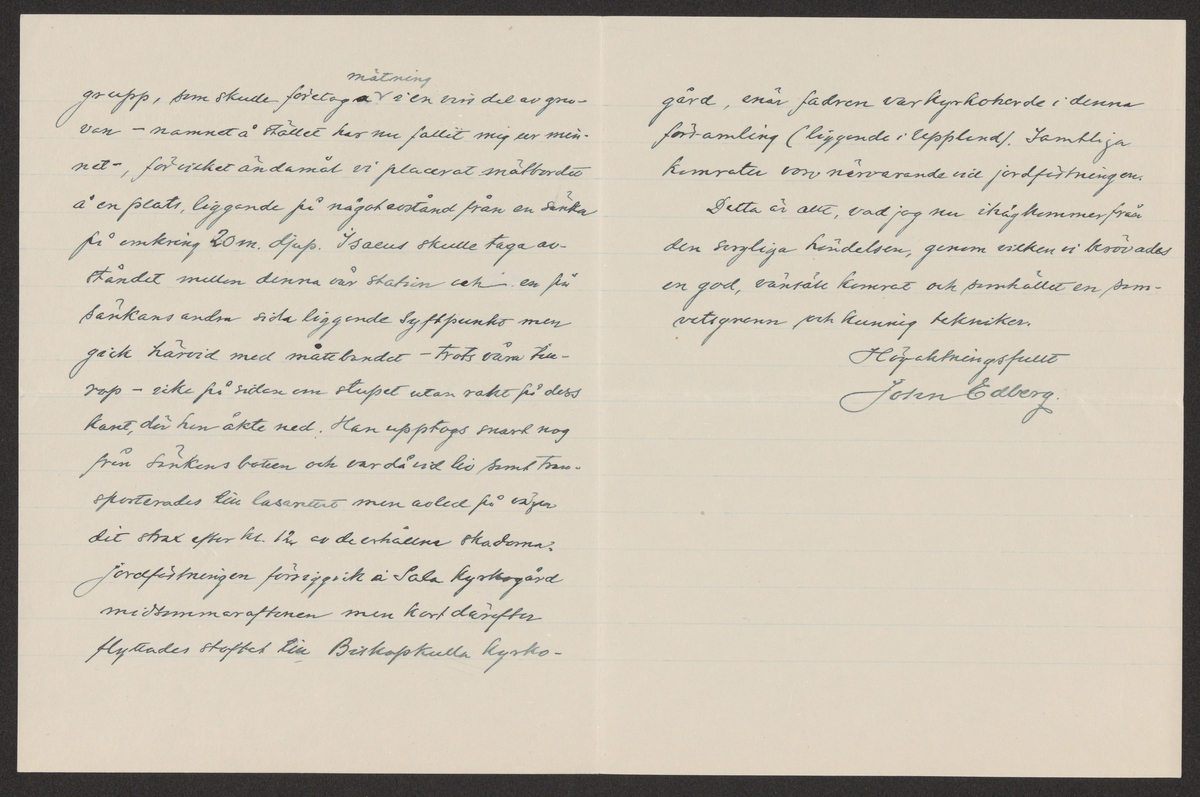 mätning
grupp, som skulle företaga i en viss del av gru-
van – namnet å stället har nu fallit mig ur min-
net –, för vilket ändamål vi placerat mätbordet
å en plats, liggande på något avstånd från en sänka
på omkring 20 m. djup. Isaeus skulle taga av-
ståndet mellan denna vår station och en på
sänkans andra sida liggande syftpunkt men
gick härvid med måttbandet – trots våra till-
rop – icke på sidan om stupet utan rakt på dess
kant, där han åkte ned. Han upptogs snart nog
från sänkans botten och var då vid liv samt tran-
sporterades till lasarettet men avled på vägen
dit strax efter kl. 12 av de erhållna skadorna.
Jordfästningen försiggick å Sala kyrkogård
midsommaraftonen men kort därefter
flyttades stoftet till Biskopskulla kyrko-
gård, enär fadren var kyrkoherde i denna
församling (liggande i Uppland). Samtliga
kamrater voro närvarande vid jordfästningen.
Detta är allt, vad jag nu ihågkommer från
den sorgliga händelsen, genom vilken vi berövades
en god, vänsäll kamrat och samhället en sam-
vetsgrann och kunnig tekniker.
Högaktningsfullt
John Edberg.